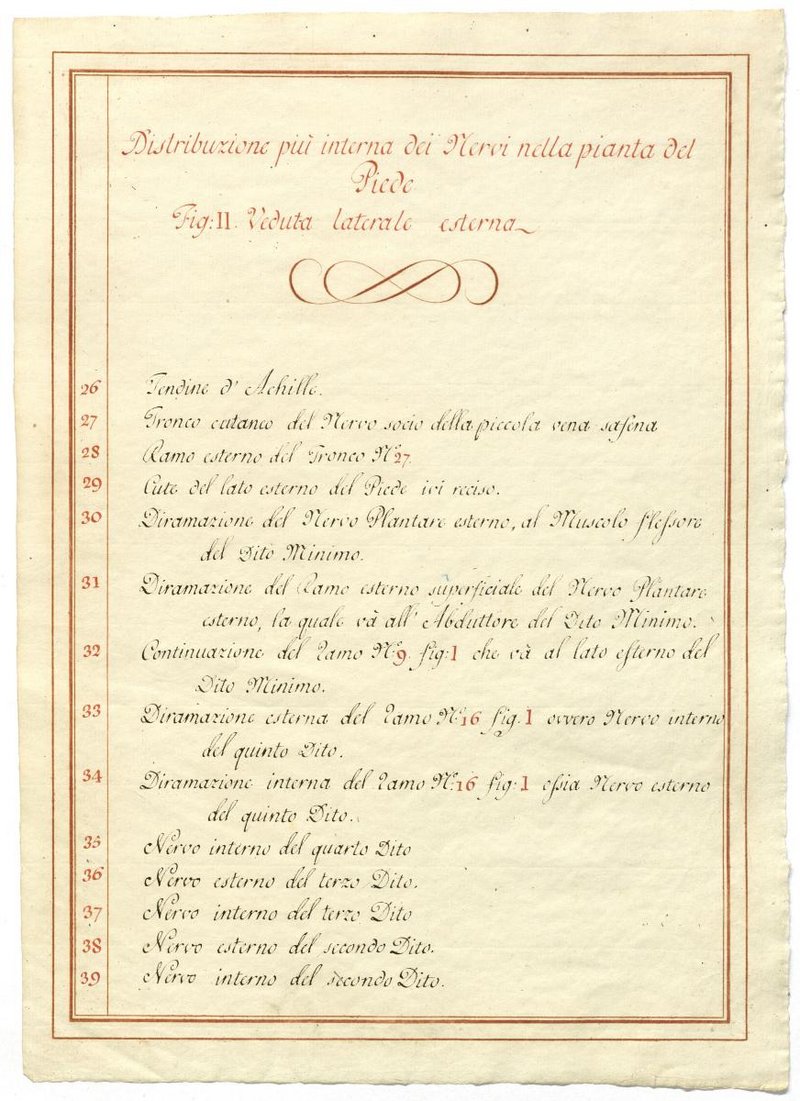 Distribuzione più interna dei Nervi nella pianta del
Piede
Fig: II. Veduta laterale esterna
26 Tendine d' Achille.
27 Tronco cutaneo del Nervo socio della piccola vena safena
28 Ramo esterno del Tronco N.° 27.
29 Cute del lato esterno del Piede ivi reciso.
30 Diramazione del Nervo Plantare esterno, al Muscolo flessore
del Dito Minimo.
31 Diramazione del Ramo esterno superficiale del Nervo Plantare
esterno, la quale và all' Abduttore del Dito Minimo.
32 Continuazione del ramo N.° 9. fig: 1 che và al lato esterno del
Dito Minimo.
33 Diramazione esterna del ramo N.° 16 fig. 1 ovvero Nervo interno
del quinto Dito.
34 Diramazione interna del ramo N.° 16 fig: 1 ossia Nervo esterno
del quinto Dito.
35 Nervo interno del quarto Dito
36 Nervo esterno del terzo Dito.
37 Nervo interno del terzo Dito
38 Nervo esterno del secondo Dito.
39 Nervo interno del secondo Dito.